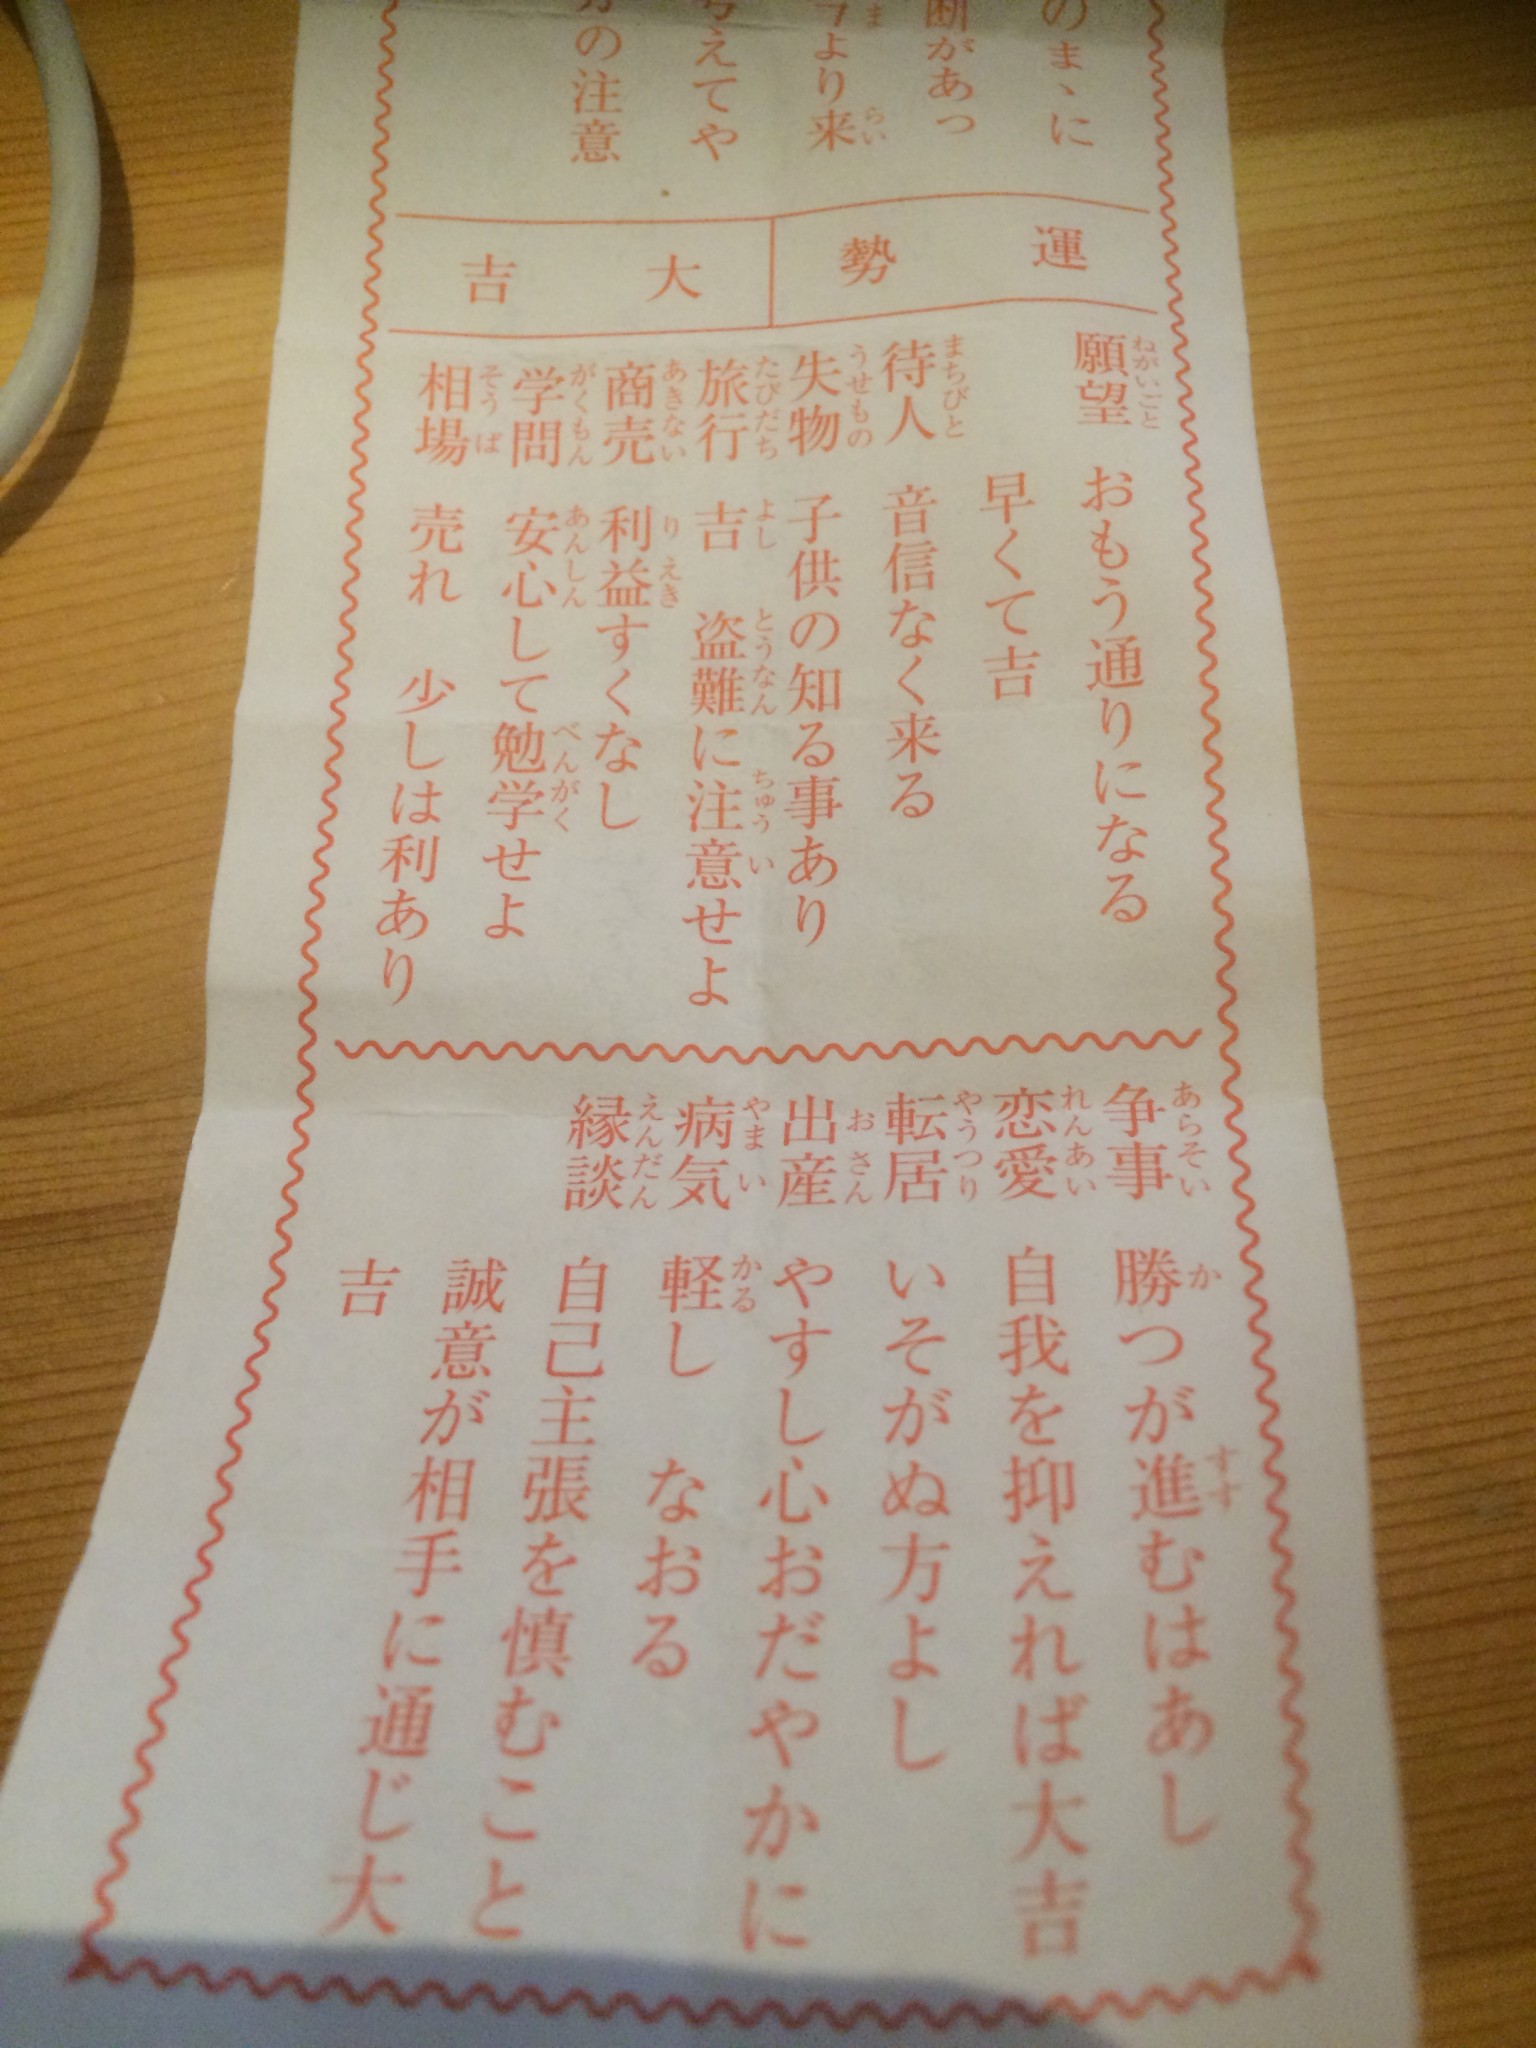 のまゝに
断があっ
より来
考えてや
の注意
運勢 大吉
願望 おもう通りになる
早くて吉
待人 音信なく来る
失物 子供の知る事あり
旅行 吉 盗難に注意せよ
商売 利益すくなし
学問 安心して勉学せよ
相場 売れ 少しは利あり
争事 勝つが進むはあし
恋愛 自我を抑えれば大吉
転居 いそがぬ方よし
出産 やすし心おだやかに
病気 軽し なおる
縁談 自己主張を慎むこと
誠意が相手に通じ大
吉